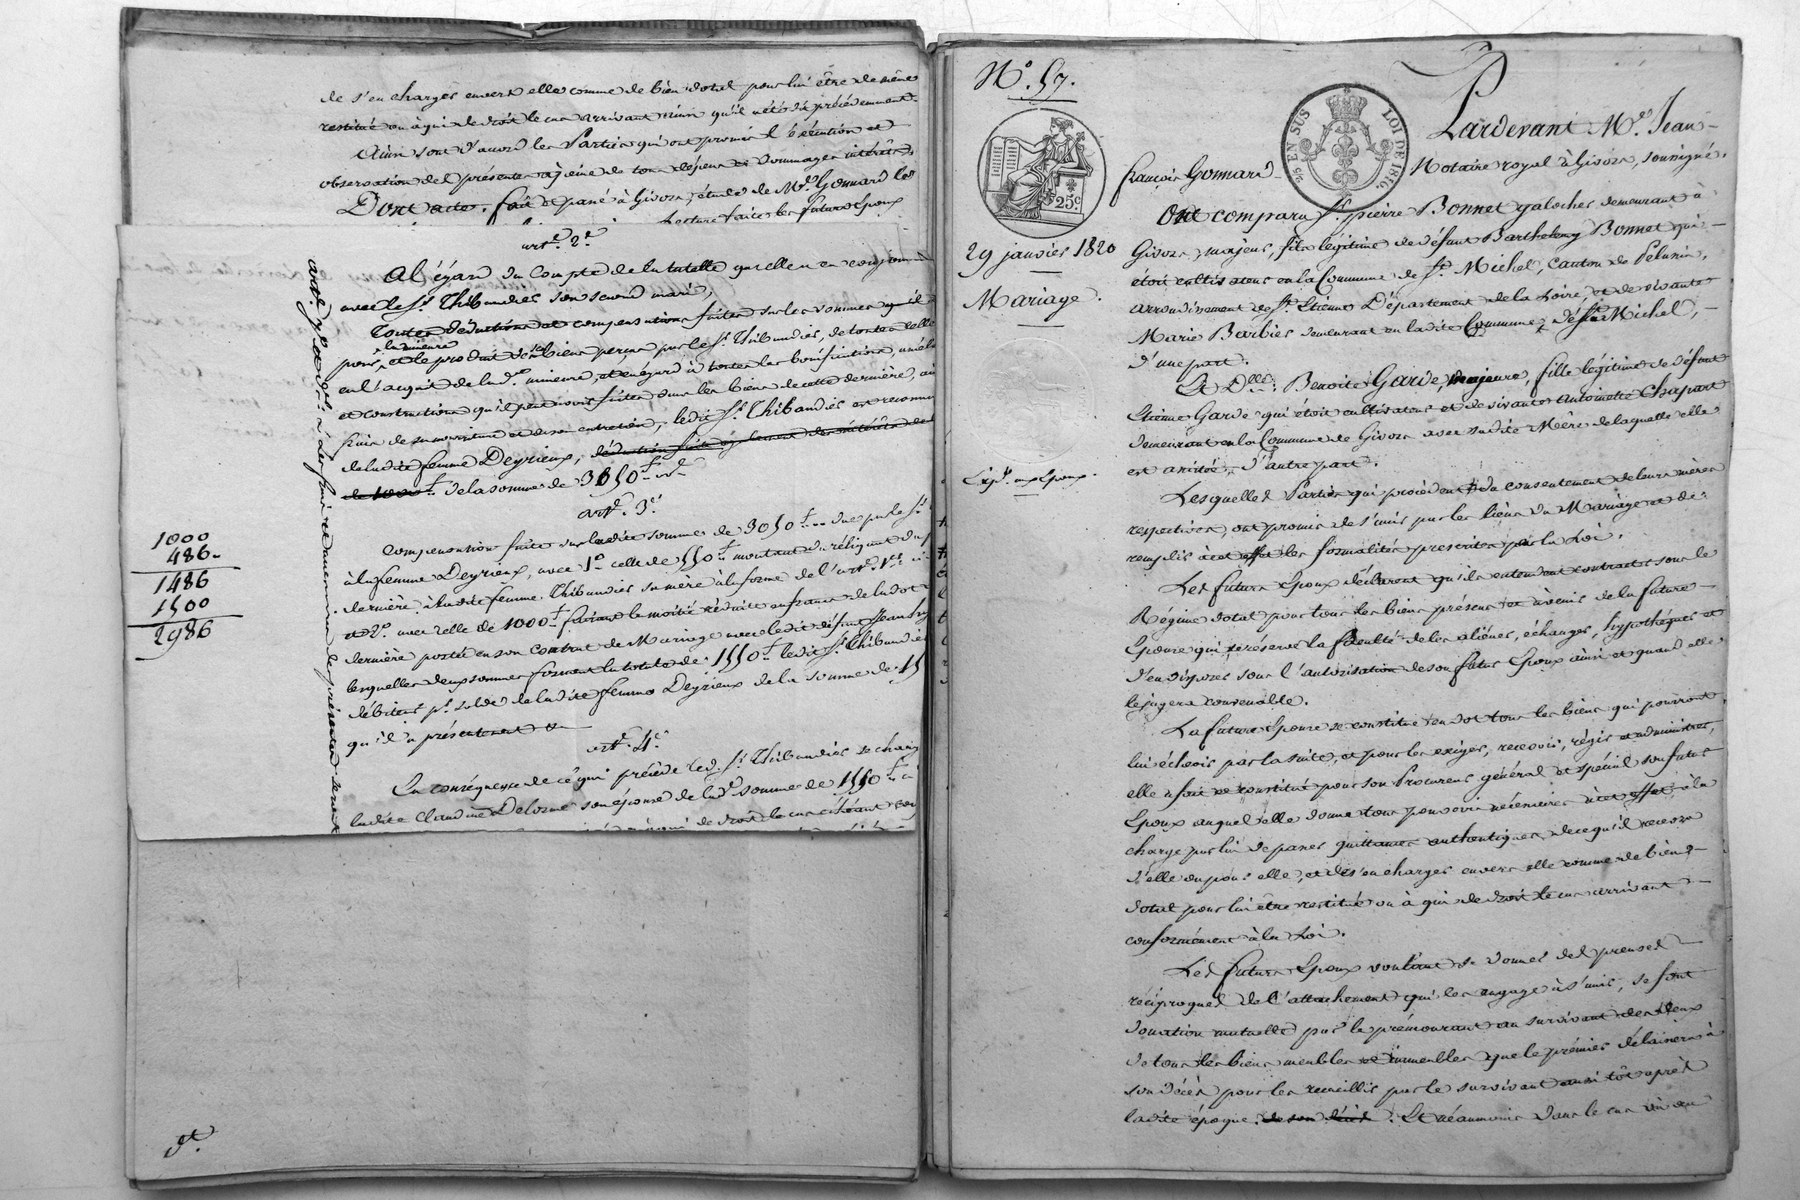 de s'en charger envers elle comme de bien dotal pour lui être de même
restitué ou à qui de droit le cas arrivant ainsi qu'il a été dit précédemment.
Ainsi sont d'accord les Parties qui ont promis l'exécution et
observation des présentes à peine de tous dépens et dommages intérêts.
Dont acte. fait et passé à Givors, étude de Me. Gonnard le
Lecture faite les futurs Epoux
art. 2e.
A l'égard du compte de la tutelle qu'elle a en conjointement
avec le Sr. Thibaudier son second mari,
Toutes déductions et compensations faites sur les sommes qu'il
la mineure
puis, et le produit de ses biens perçu par le Sr. Thibaudier, de toutes celles
en l'acquit de lad. mineure, et en égard à toutes les bonifications, améli
et constructions qu'il peut avoir faites dans les biens de cette dernière, aux
frais de sa nourriture et de son entretien, ledit Sr. Thibaudier est reconnu
de ladite femme Deyrieux, déduction faite également des intérêts de
de 1000 f. de la somme de 3050 f.
art. 3e.
Compensation faite sur ladite somme de 3050 f. due par le Sr.
à la femme Deyrieux, avec 1o. celle de 550 f. montant du reliquat du
dernière à ladite femme Thibaudier sa mère à la forme de l'art. 1er.
et 2o. avec celle de 1000 f. faisant la moitié réduite en francs de la dot
dernière portée en son contrat de Mariage avec ledit défunt Jean
lesquelles deux sommes forment la totale de 1550 f. ledit Sr. Thibaudier
débiteur pr. solde de ladite femme Deyrieux de la somme de 15
qu'il a présentement
art. 4e.
En conséquence de ce qui précède led. Sr. Thibaudier se charge
ladite Claudine Delorme son épouse de lad. somme de 1550 f.
de droit le cas échéant
1000
486
1486
1500
2986
No. 57.
25c
25 EN SUS
LOI DE 1816
Pardevant Me. Jean
françois Gonnard Notaire royal à Givors, soussigné.
29 janvier 1820
Mariage.
Expn. aux Epoux.
Ont comparu Sr. pierre Bonnet galocher demeurant à
Givors, majeur, fils légitime de défunt Barthelemy Bonnet qui
étoit cultivateur en la Commune de St. Michel, canton de Pelussin,
arrondissement de St. Etienne Département de la Loire, et de vivante
Marie Barbier demeurant en ladite Commune de St. Michel,
d'une part.
Et Dlle. Benoite Garde, majeure, fille légitime de défunt
Etienne Garde qui étoit cultivateur et de vivante Antoinette Chapart
demeurant en la Commune de Givors avec sadite Mère de laquelle elle
est assistée, d'autre part.
Lesquelles Parties qui procèdent du consentement de leurs mères
respectives, ont promis de s'unir par les liens du Mariage et de
remplir à cet effet les formalités prescrites par la Loi.
Les futurs Epoux déclarent qu'ils entendent contracter sous le
Régime dotal pour tous les biens présens et à venir de la future
Epouse qui se réserve la faculté de les aliéner, échanger, hypothéquer et
d'en disposer sous l'autorisation de son futur Epoux ainsi et quand elle
le jugera convenable.
La future Epouse se constitue en dot tous les biens qui pourront
lui échoir par la suite, et pour les exiger, recevoir, régir et administrer,
elle a fait et constitué pour son Procureur général et spécial son futur
Epoux auquel elle donne tous pouvoirs nécessaires à cet effet, à la
charge par lui de passer quittances authentiques de ce qu'il recevra
d'elle ou pour elle, et de s'en charger envers elle comme de bien
dotal pour lui être restitué ou à qui de droit le cas arrivant
conformément à la Loi.
Les futurs Epoux voulant se donner des preuves
réciproques de l'attachement qui les engage à s'unir, se font
donation mutuelle par le prémourant au survivant des deux
de tous les biens meubles et immeubles que le premier délaissera à
son décès pour les recueillir par le survivant aussi tôt après
ladite époque. de son décès. Et néanmoins dans le cas où au